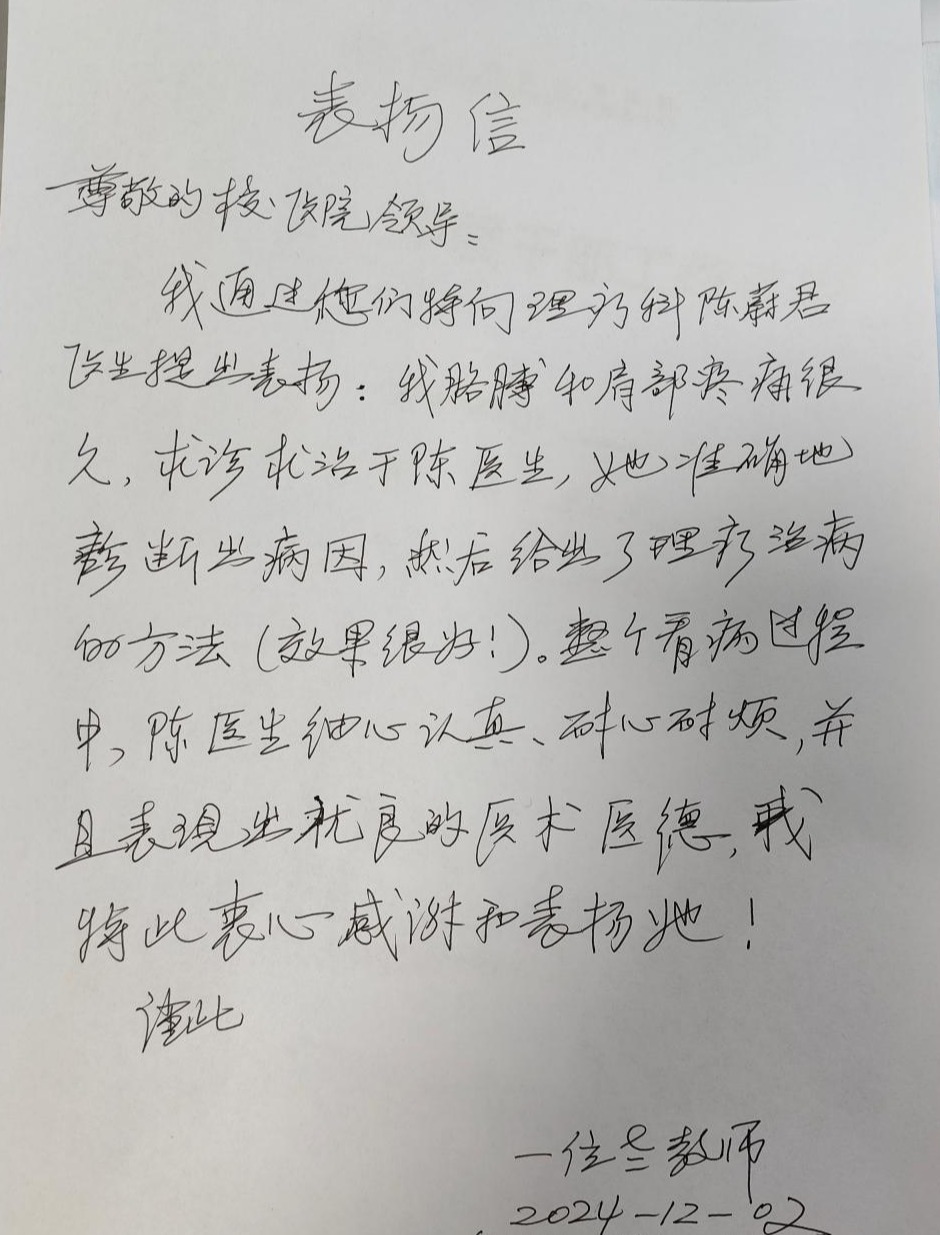 表扬信
尊敬的校医院领导：
我通过您们特向理疗科陈蔚君
医生提出表扬：我胳膊和肩部疼痛很
久，求诊求治于陈医生，她准确地
诊断出病因，然后给出了理疗治病
的方法（效果很好！）。整个看病过程
中，陈医生细心认真、耐心耐烦，并
且表现出优良的医术医德，我
特此衷心感谢和表扬她！
谨此
一位老教师
2024-12-02